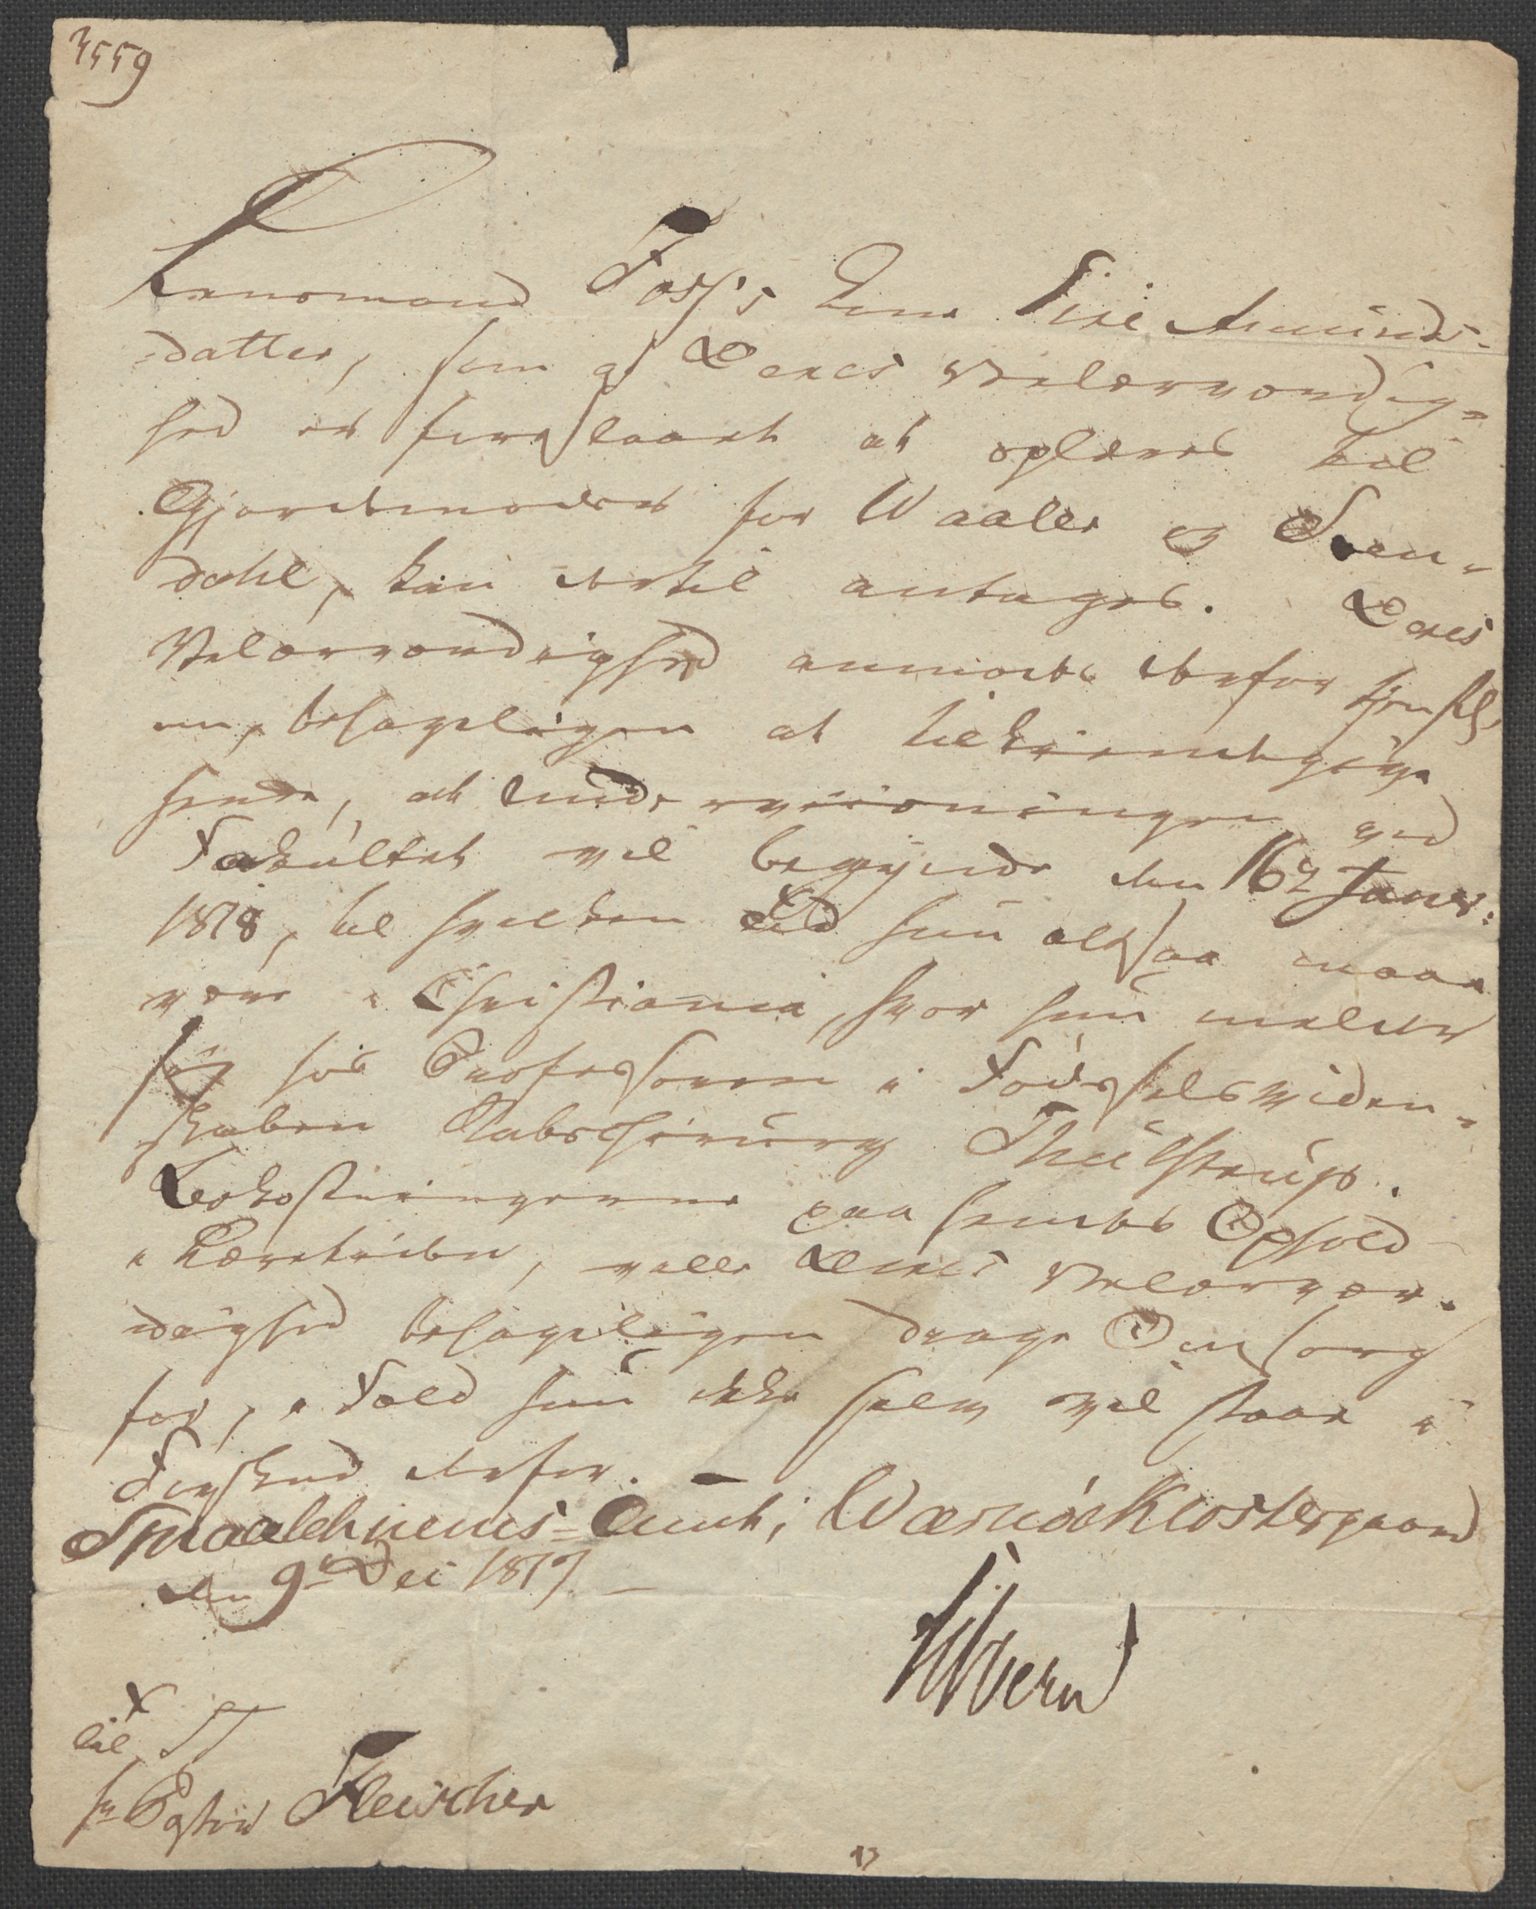 4559
Lensmand Foss's Kone Siri Amunds-
datter, som af Deres Velærværdig-
hed er foreslaaet at oplæres til
Gjordemoder for Waaler og Svin-
dahl, kan dertil antages. Deres
Velærværdighed anmodes derfor
om, behageligen at tilkiendegive
hende, at Underviisningen ved
Fakultet vil begynde den 16de Janr:
1818, til hvilken Tid hun altsaa maae
være i Christiania, hvor hun melder
sig hos Professoren i Fødselsviden-
skaben Stabschirurg Thulstrup.
Bekostningerne paa hendes Ophold
i Læretiden, ville Deres Velærvær-
dighed behageligen drage Omsorg
for, i Fald hun ikke selv vil staae i
Forskud derfor.
Smaalehnenes-Amt, Værnöe Klostergaard
den 9de Dec 1817
Sibbern
Til
Hr Pastor Fleischer